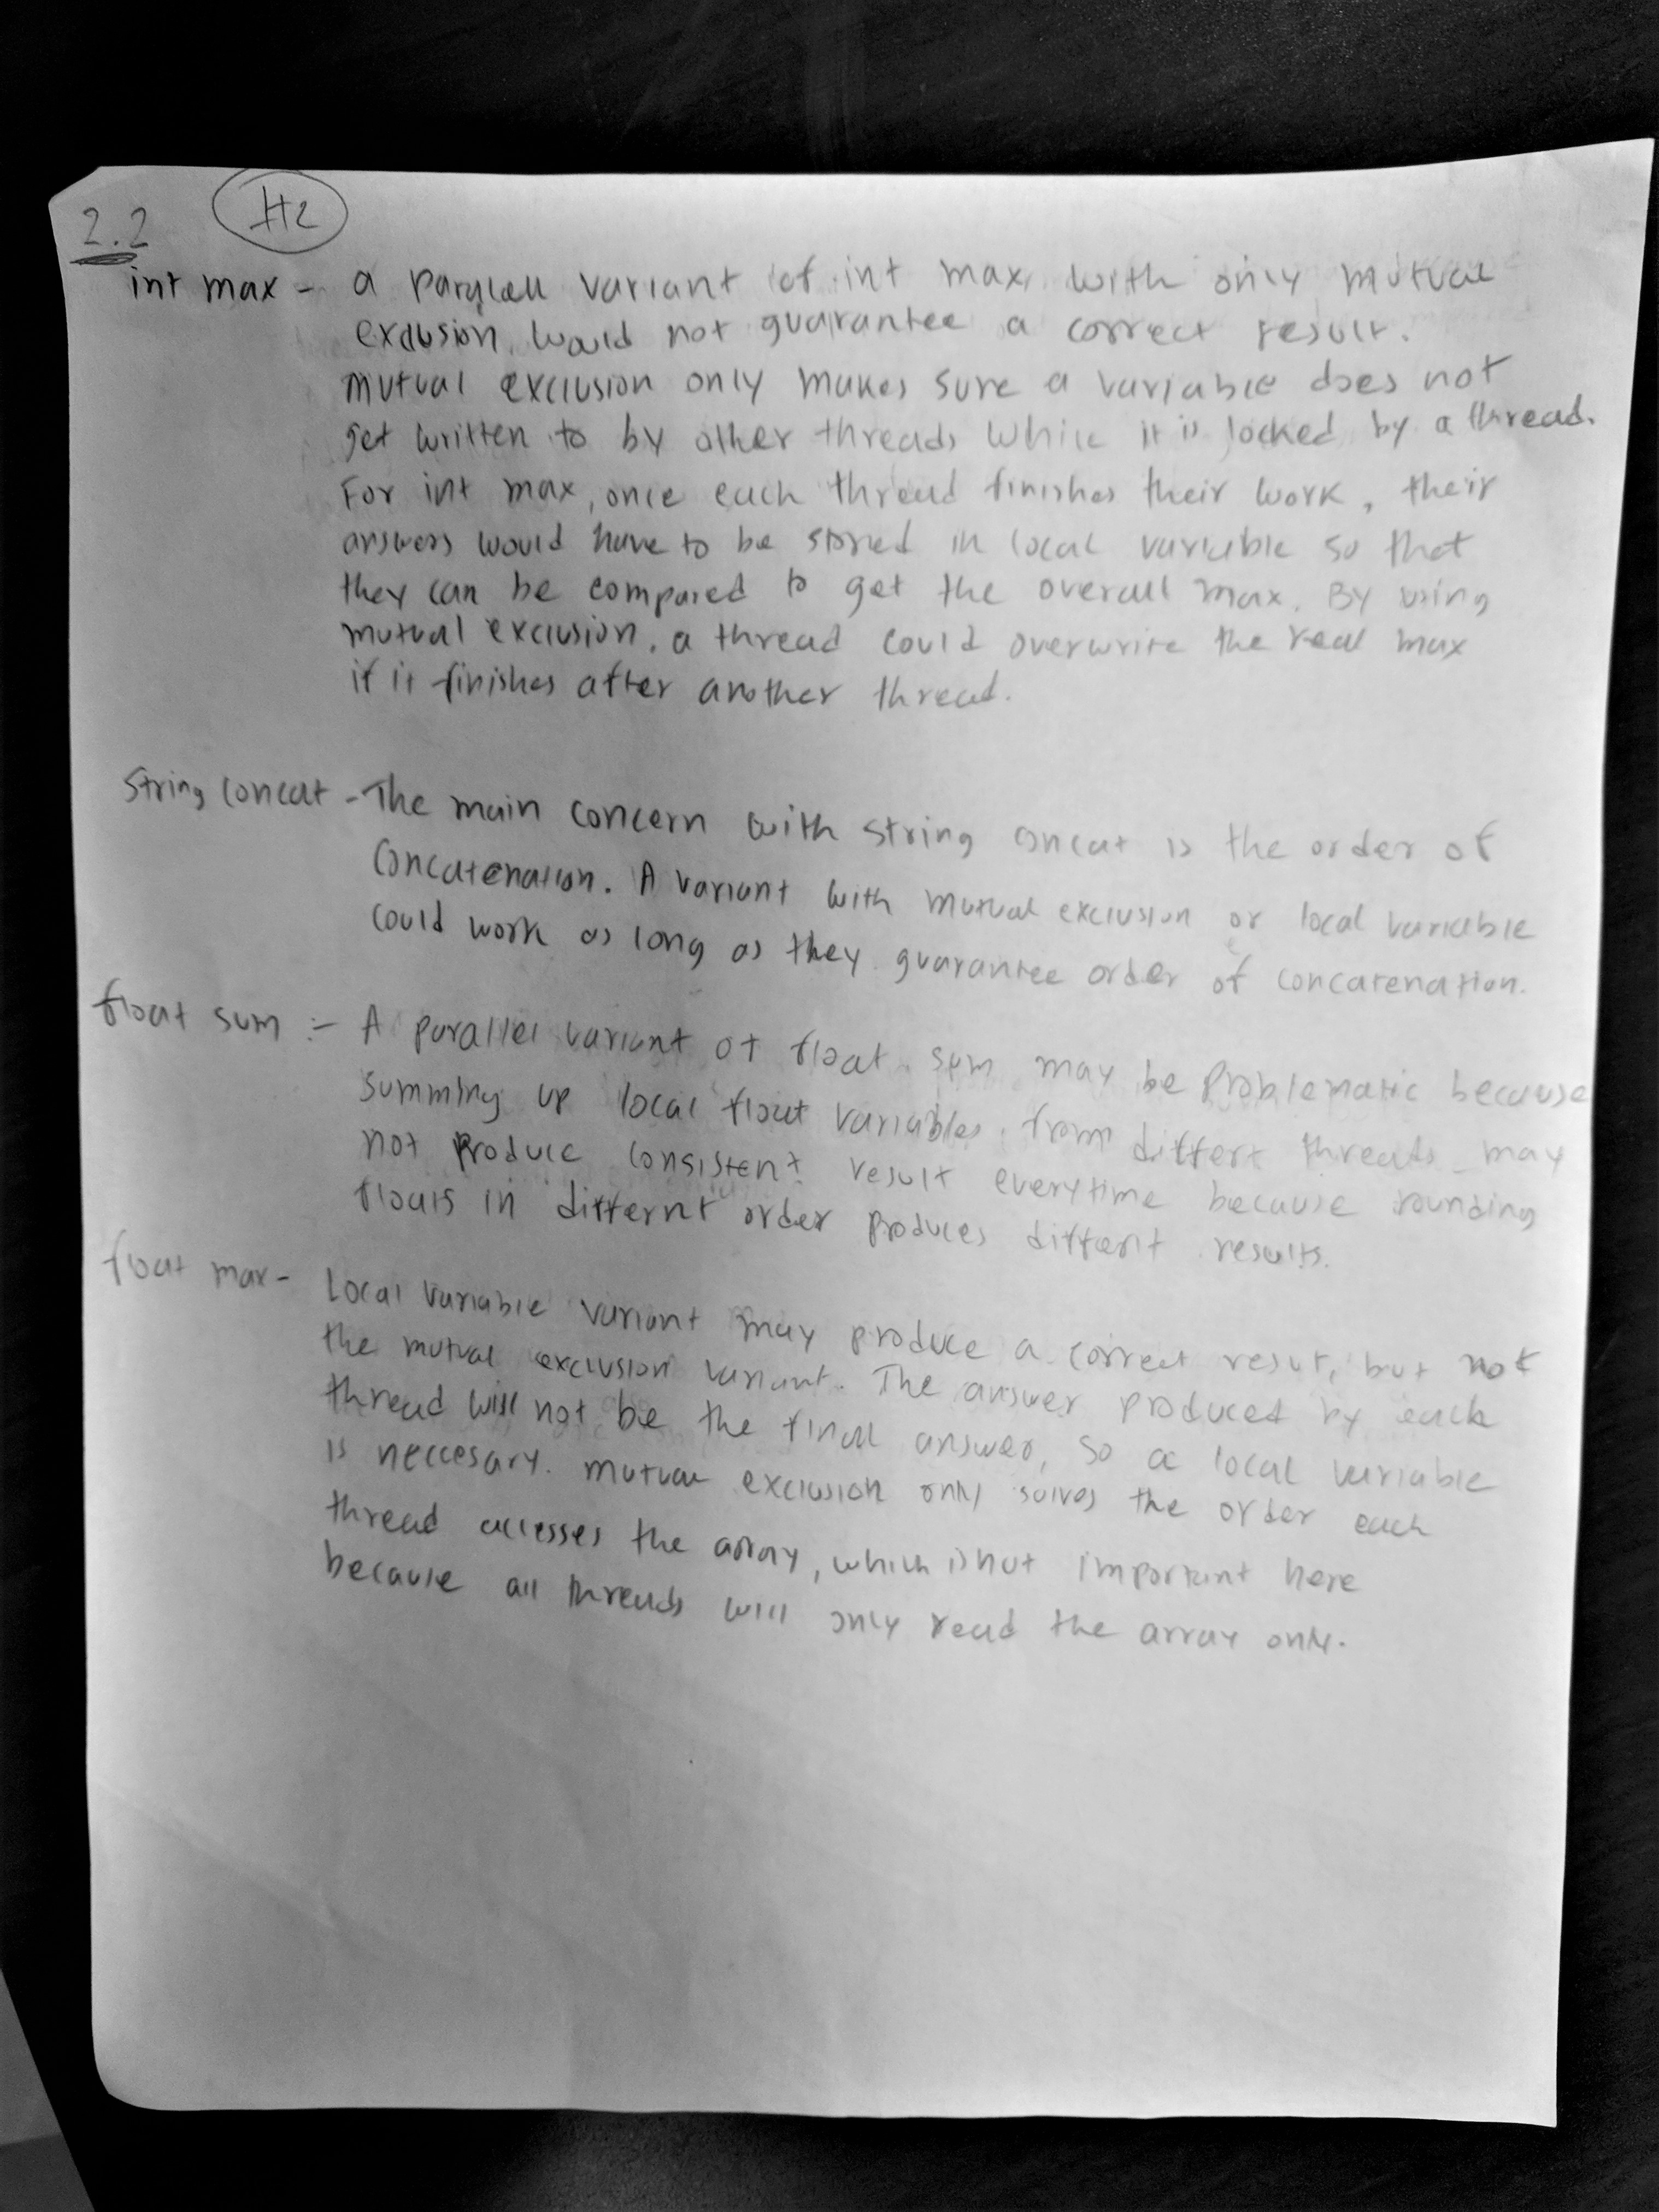 2.2 H2
int max - a parallell variant of int max, with only mutual
exclusion, would not guarantee a correct result.
mutual exclusion only makes sure a variable does not
get written to by other threads while it is locked by a thread.
For int max, once each thread finishes their work, their
answers would have to be stored in local variable so that
they can be compared to get the overall max. By using
mutual exclusion, a thread could overwrite the real max
if it finishes after another thread.
String concat - The main concern with string concat is the order of
concatenation. A variant with mutual exclusion or local variable
could work as long as they guarantee order of concatenation.
float sum :- A parallel variant of float sum may be problematic because
summing up local float variables from differt threads may
not produce consistent result everytime because rounding
floats in differnt order produces differnt results.
float max - Local variable variant may produce a correct resut, but not
the mutual exclusion variant. The answer produced by each
thread will not be the final answer, so a local variable
is neccesary. mutual exclusion only solves the order each
thread accesses the array, which is not important here
because all threads will only read the array only.